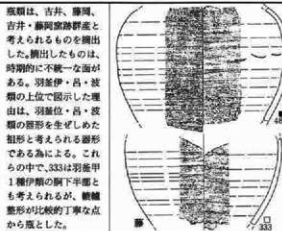 瓶類は、吉井、藤岡、
吉井・藤岡窯跡群産と
考えられるものを摘出
した。摘出したものは、
時期的に不統一な面が
ある。羽釜伊・呂・波
類の上位で図示した理
由は、羽釜位・呂・波
類の器形を生ぜしめた
祖形と考えられる器形
である為による。これ
らの中で、333は羽釜甲
1種伊類の胴下半部と
も考えられるが、轆轤
整形が比較的丁寧な点
から瓶とした。
藤
333